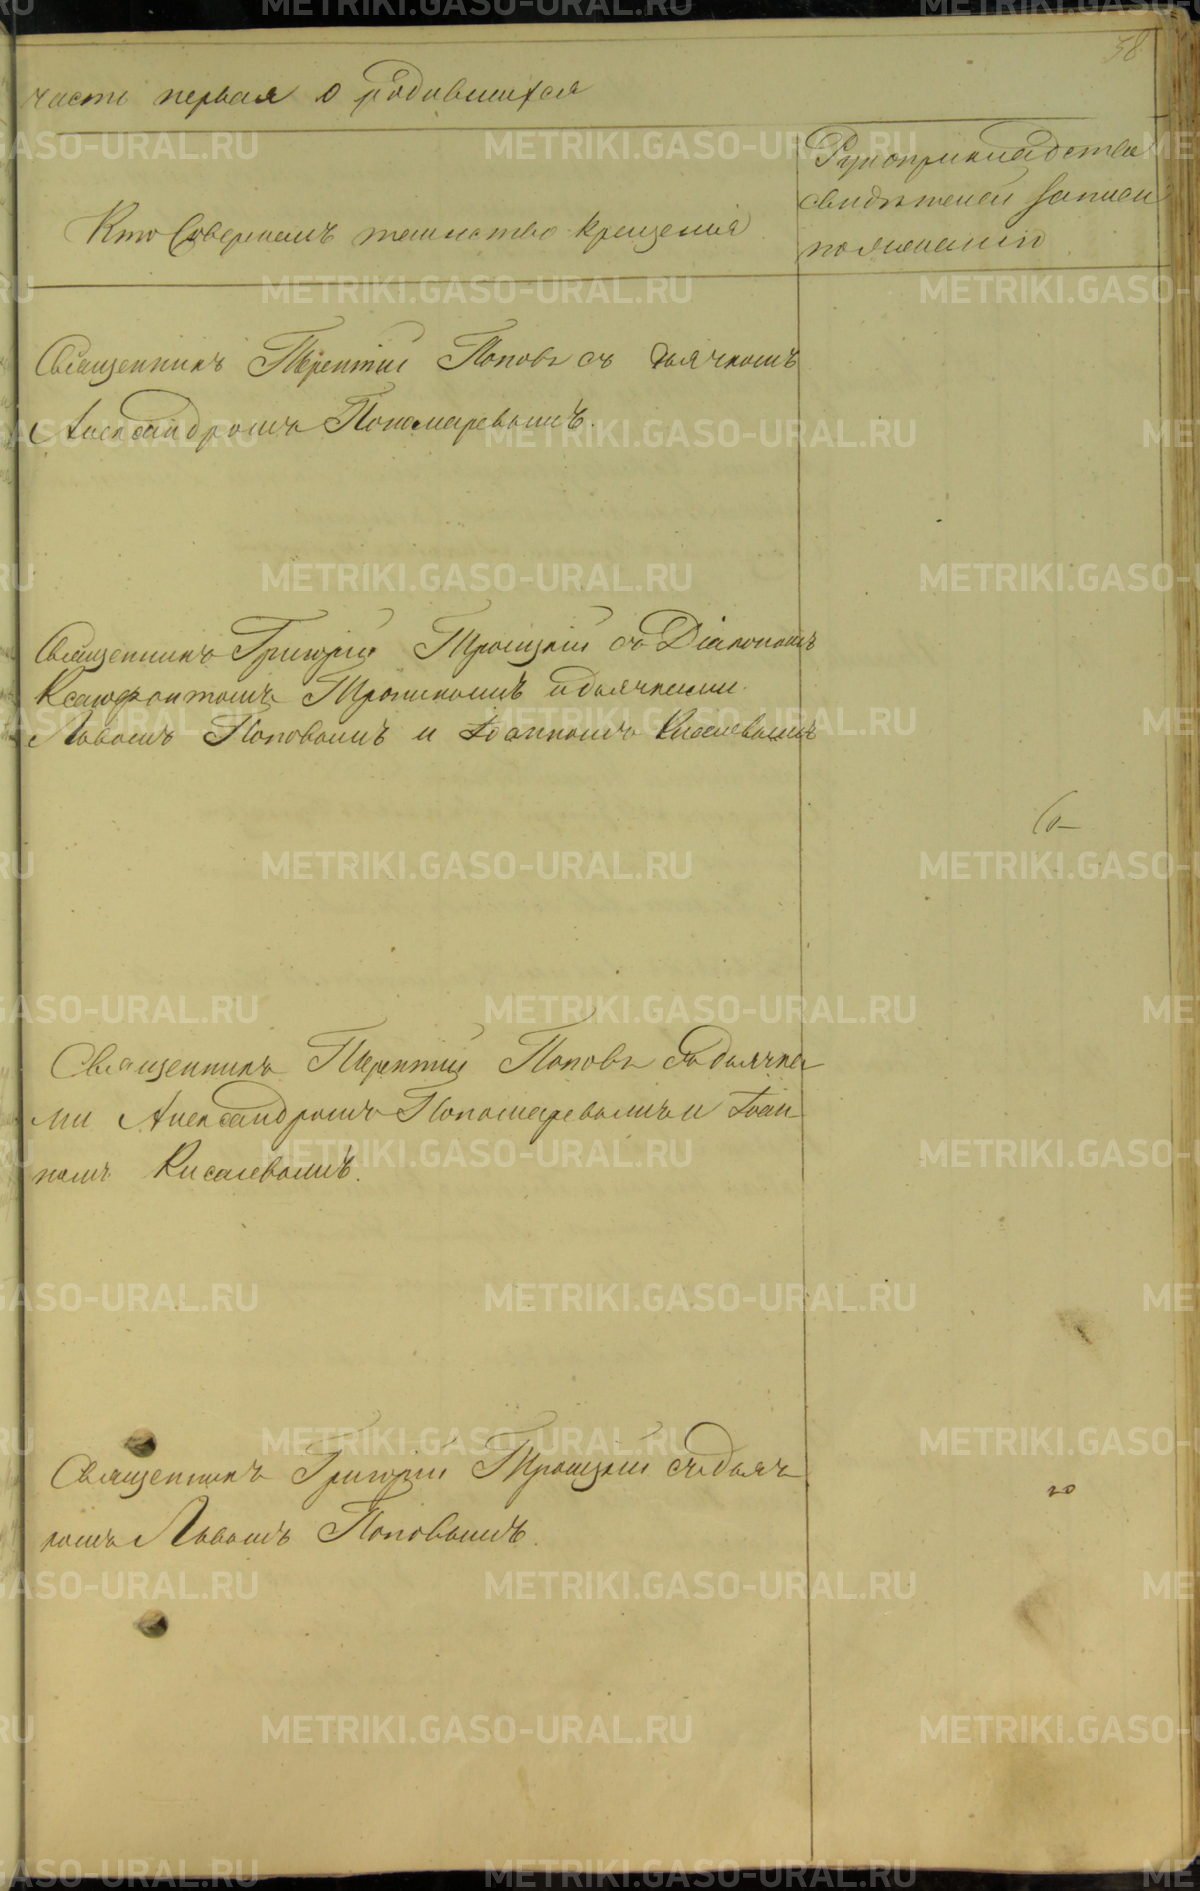 58
часть первая о родившихся
Кто Совершалъ таинство крещенія
Рукоприкладство
свидѣтелей записи
по желанію
Священникъ Терентій Поповъ съ дьячкомъ
Александромъ Пономаревымъ.
Священникъ Григорій Троицкій съ Діакономъ
Ксанфонтомъ Трониномъ и дьячками
Львомъ Поповымъ и Іоанномъ Киселевымъ
Священникъ Терентій Поповъ съ дьячка
ми Александромъ Пономаревымъ и Іоан
номъ Киселевымъ.
Священникъ Григорій Троицкій съ дьяч
комъ Львомъ Поповымъ.
METRIKI.GASO-URAL.RU